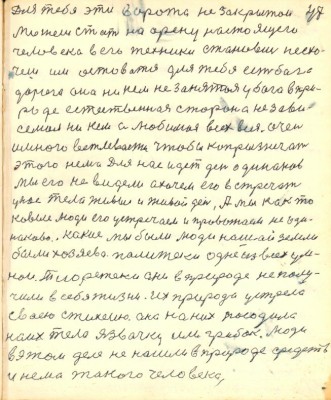 Для тебя эти ворота не закрытои 47
можем стать на арену настоящего
человека весь техники становиш неско-
чем им остоватся для тебя есть бага
дорога она ни кем не занятоя у бага в при-
роде естественноя сторона не зави-
семоя ни кем а любимоя всех ея. очен
много
этого нема Для нас идет ден одинаков
мы его не видем а хочем его встречат
у нос тела живые и живой ден, А мы как то
ковые люди его устречаем и провожаем не оди-
наково. Какие мы были люди нашей земли
были хозяева. политеки одне из всех ум-
ной. Тиоретеки они в природе не полу-
чили в себя жизни. Их природа устрела
своею стихеию. она на них посодила
на их тело язвачку или грибок. Люди
в этом деле не нашли в природе средств
и нема такого человека,